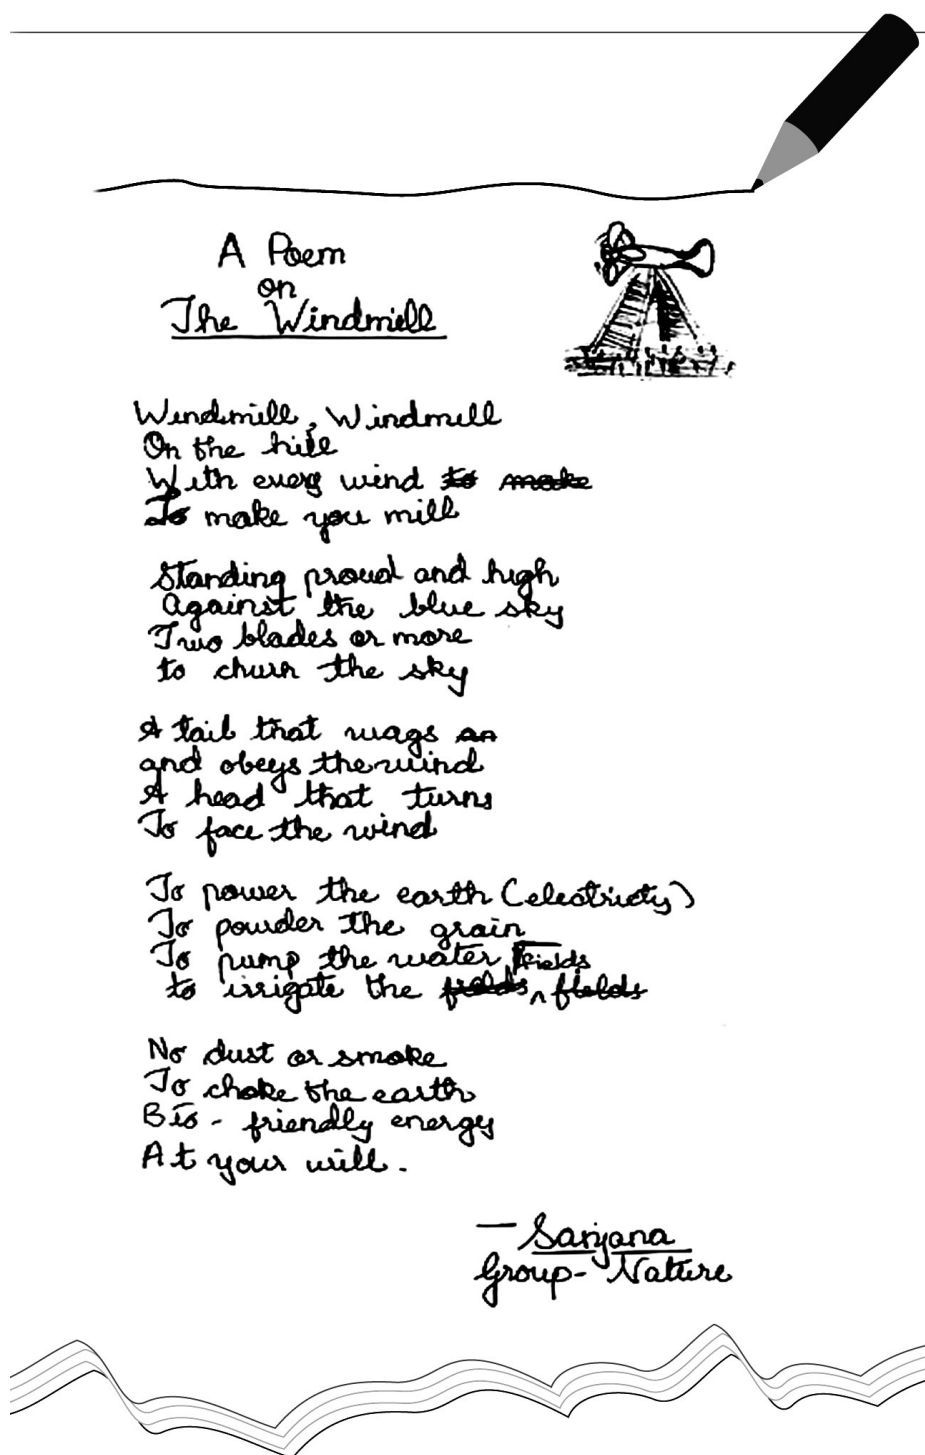 A Poem
on
The Windmill
Windmill, Windmill
On the hill
With every wind to make
To make you mill
Standing proud and high
Against the blue sky
Two blades or more
to churn the sky
A tail that wags an
and obeys the wind
A head that turns
To face the wind
To power the earth (electricty)
To powder the grain
To pump the water
Fields
to irrigate the fields ^ fields
No dust or smoke
To choke the earth
Bio-friendly energy
At your will.
— Sanjana
Group - Nature